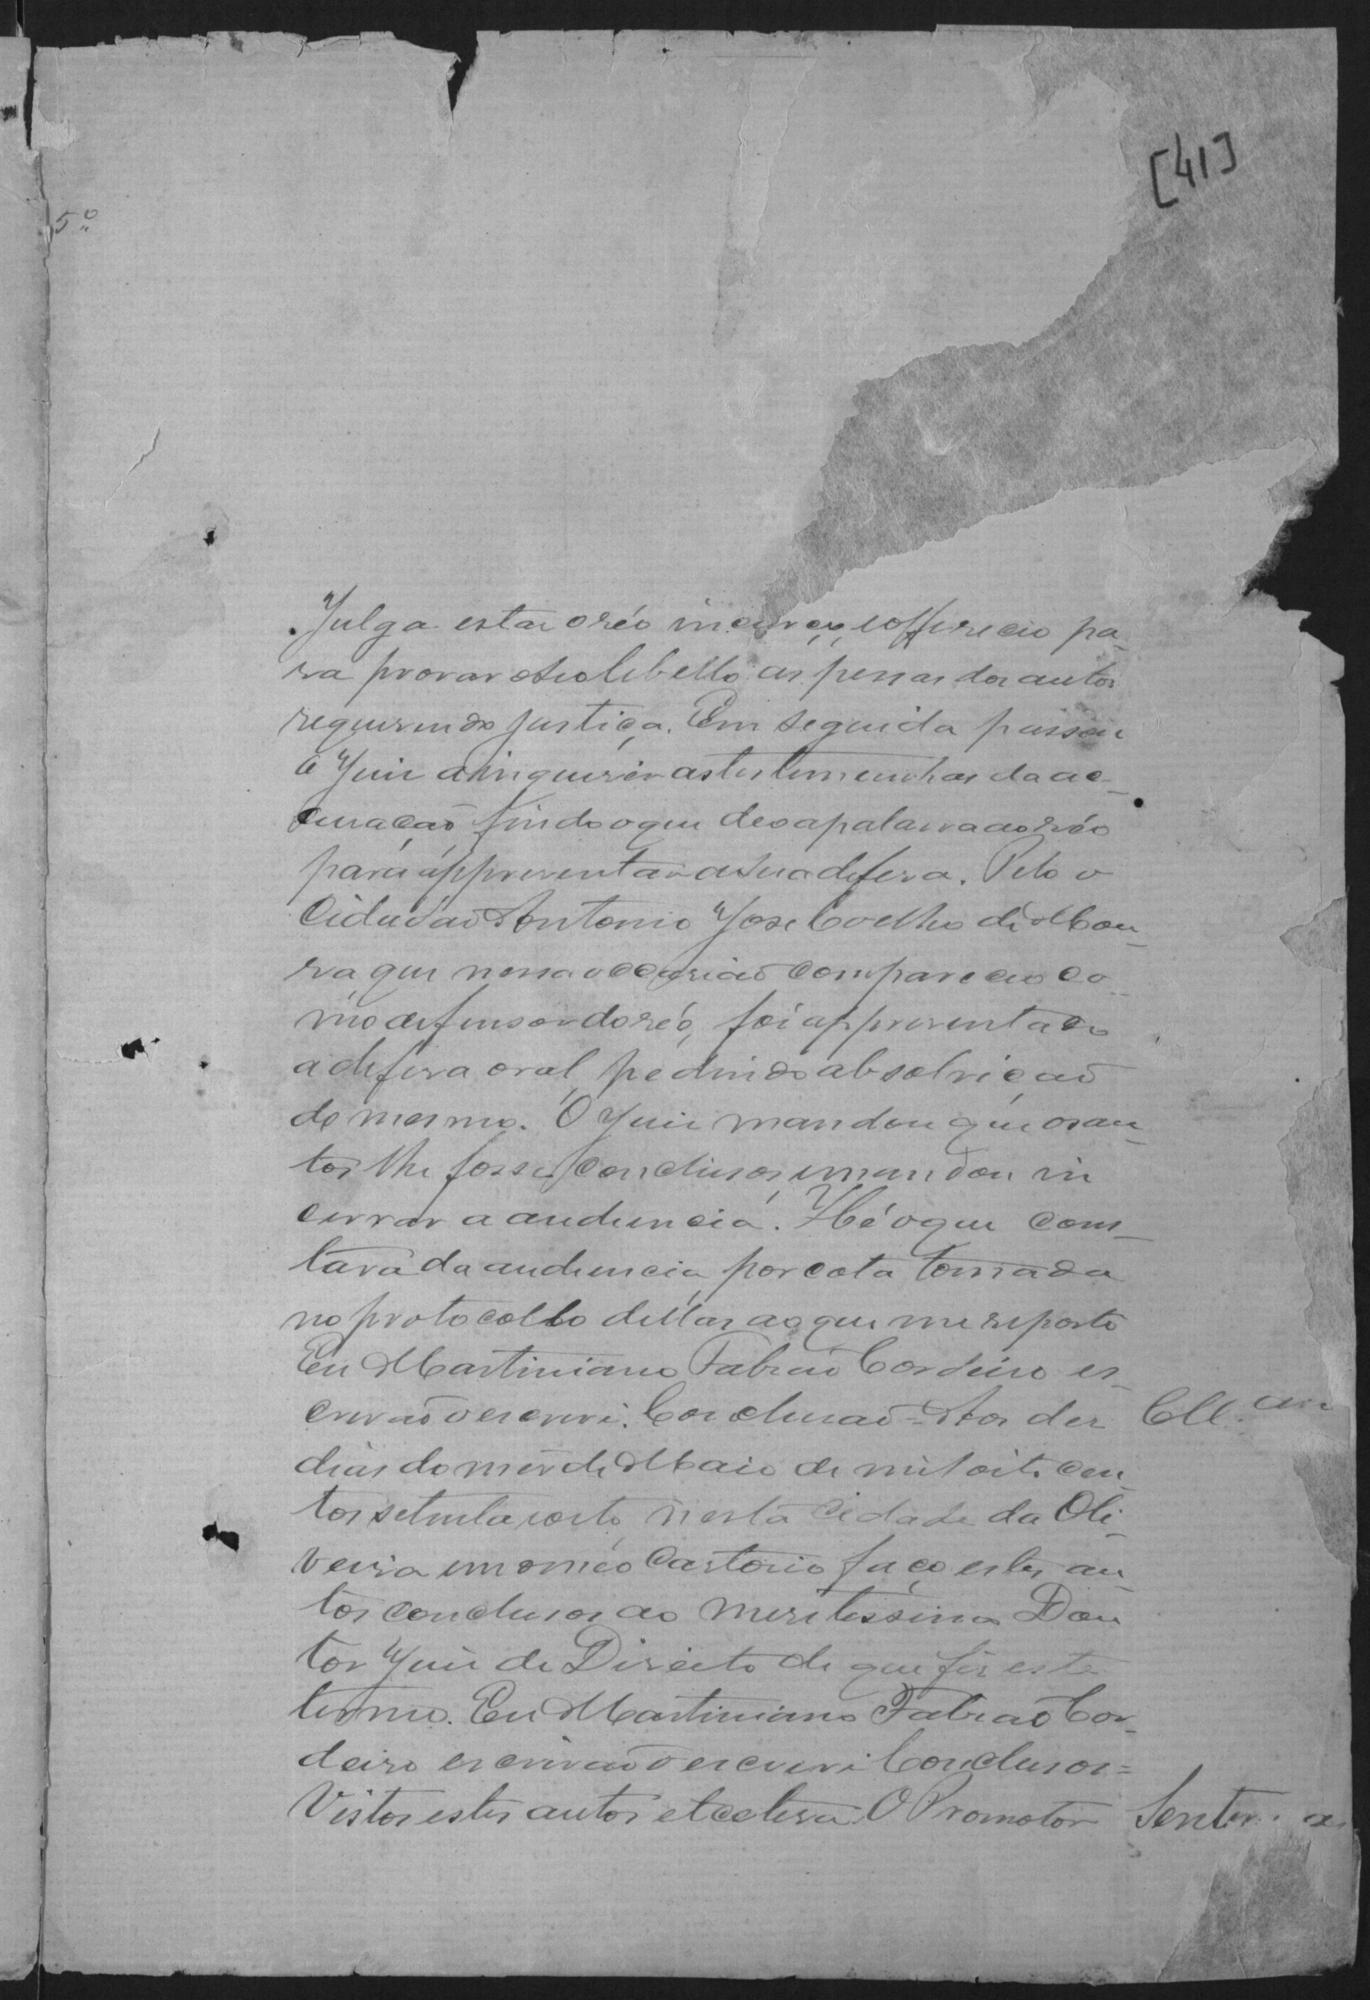 [41]
5º
Julga estar o réo incurso, e offereceo pa-
ra provar o seo libello as pessas dos autos
requerendo justiça. Em seguida passou
o Juiz a inquerir as testemunhas da ac-
cusação, findo o que deo a palavra ao réo
para appresentar a sua defesa. Pelo o
Cidadão Antonio José Coelho de Mou-
ra, que nessa occasião compareceo co-
mo defensor do réo, foi appresentado
a defesa oral, pedindo absolvição
do mesmo. O Juiz mandou que os au-
tos lhe fosse conclusos, e mandou in
cerrar a audiencia. Hé o que cons-
tava da audiencia, por cota tomada
no protocollo dellas ao que me reporto
Eu Martiniano Fabião Cordeiro es-
crivão o escrevi. Conclusão = Aos dez
Cll.am
dias do mes de Maio de mil oito cen
tos setenta e oito nesta Cidade da Oli-
veira em o meo Cartorio faço estes au-
tos conclusos ao meretissimo Dou
tor Juiz de Direito de que fiz este
termo. Eu Martiniano Fabião Cor-
deiro escrivão o escrevi Conclusos =
Vistos estes autos etcetera. O Promotor
Senten a